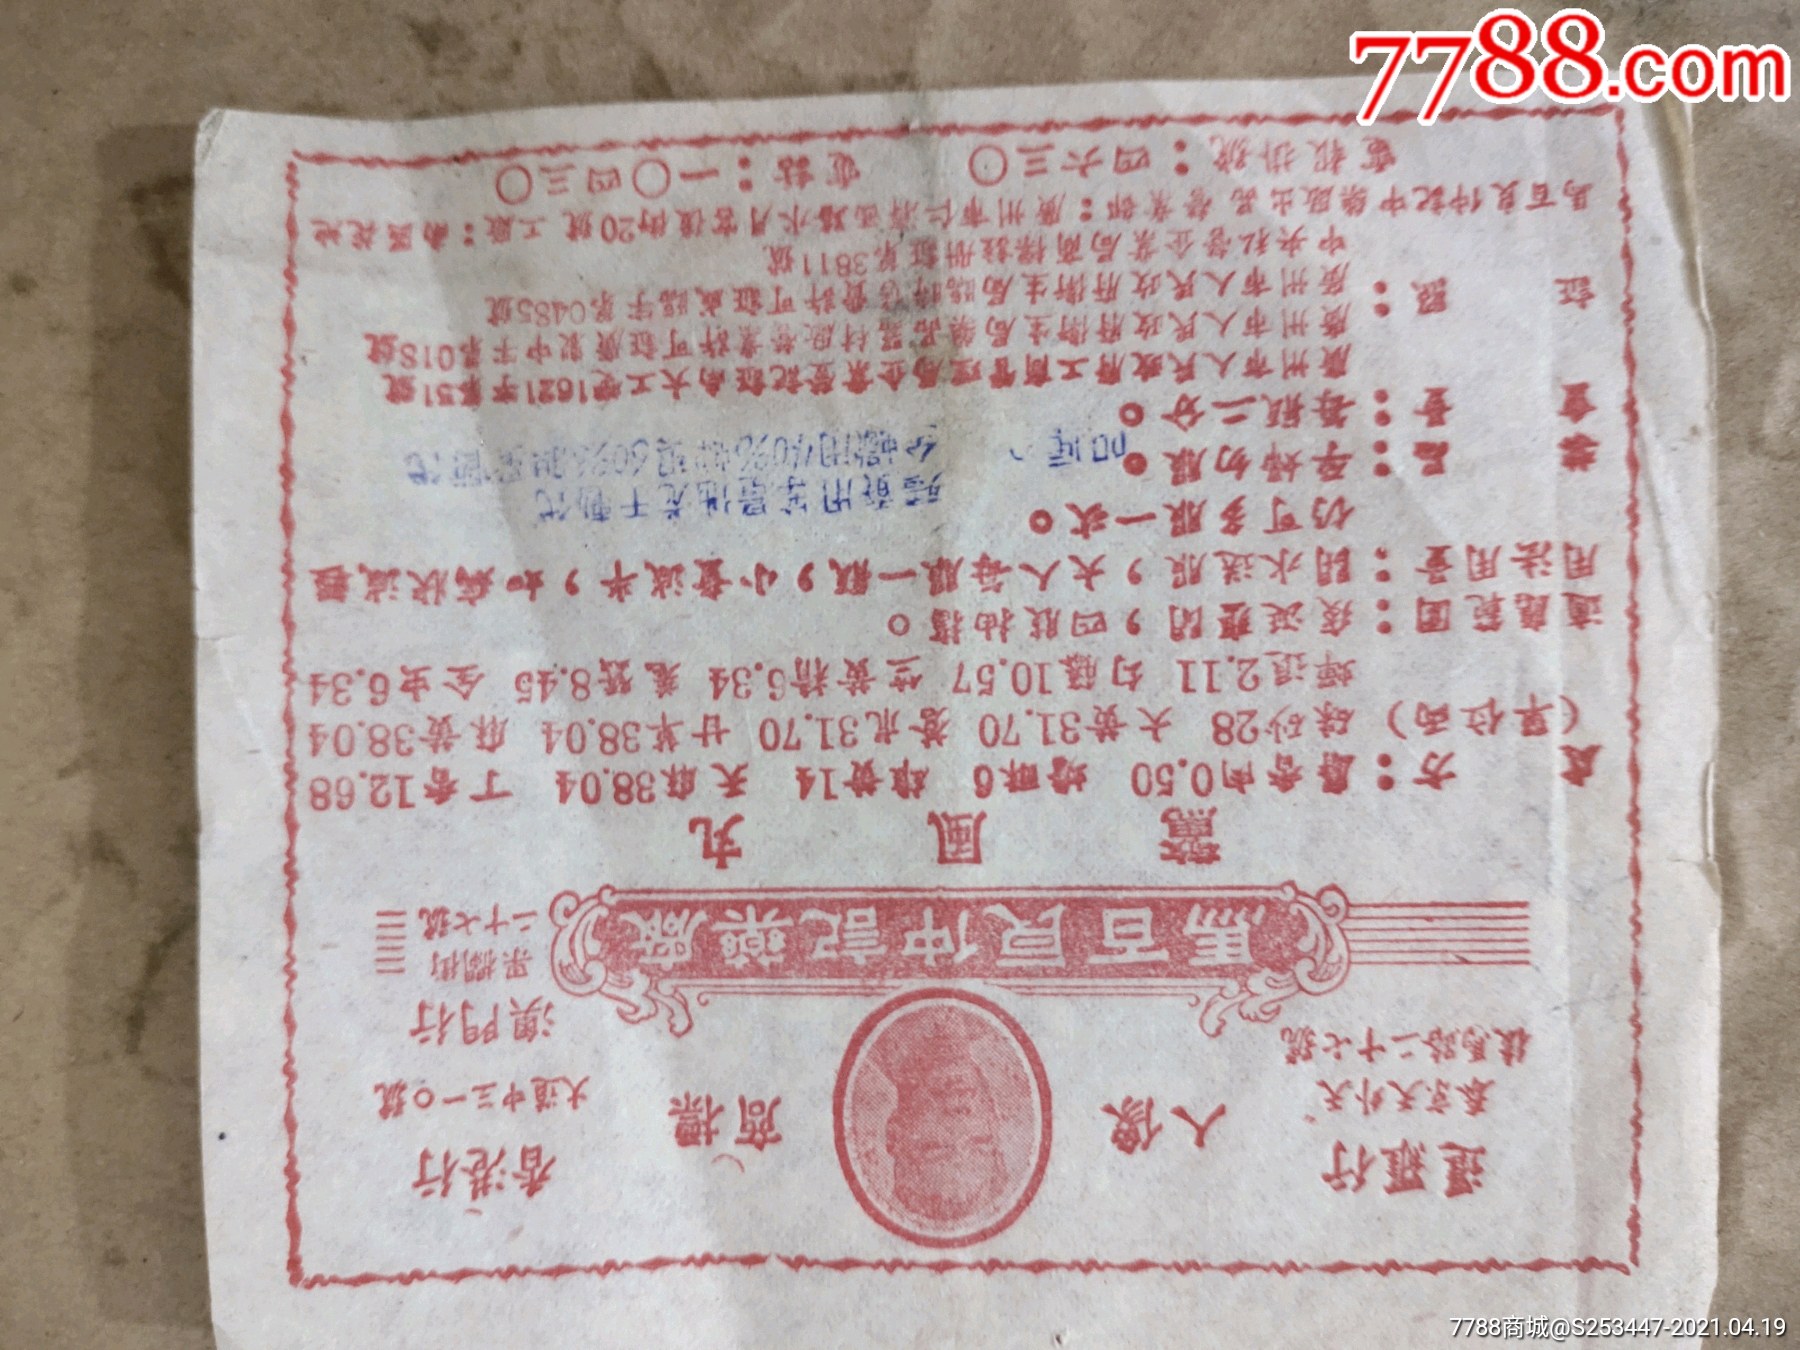 7788.com
暹羅行
人像
商標
香港行
泰京天外天
大道中三一〇號
馬路二十七號
澳門行
果欄街
二十七號
馬百良仲記藥廠
驚風丸
成方：麝香肉0.50 蟾酥6 雄黃14 天麻38.04 丁香12.68
(單位兩) 硃砂28 大黃31.70 蒼朮31.70 甘草38.04 麻黃38.04
蟬退2.11 勾藤10.57 竺黃精6.34 羌蠶8.45 全虫6.34
適應範圍：痰涎壅閉，四肢抽搐。
用法用量：開水送服，大人每服一瓶，小童減半，如病狀減輕
仍可多服一次。
禁忌：孕婦勿服。
重量：每瓶二分。
廣州市人民政府工商管理局企業登記証南大工更1621字第51號
廣州市人民政府衛生局藥品器材股營業許可証廣製中字第018號
証照：廣州市人民政府衛生局臨時售賣許可証成臨字第0485號
中央私營企業局商標註册証第3811號
馬百良仲記中藥廠出品 營業部：廣州市仁濟西路水月宮後街20號 工廠：南區花地
電報掛號：四六三〇 電話：一〇四三〇
7788商城@S253447-2021.04.19